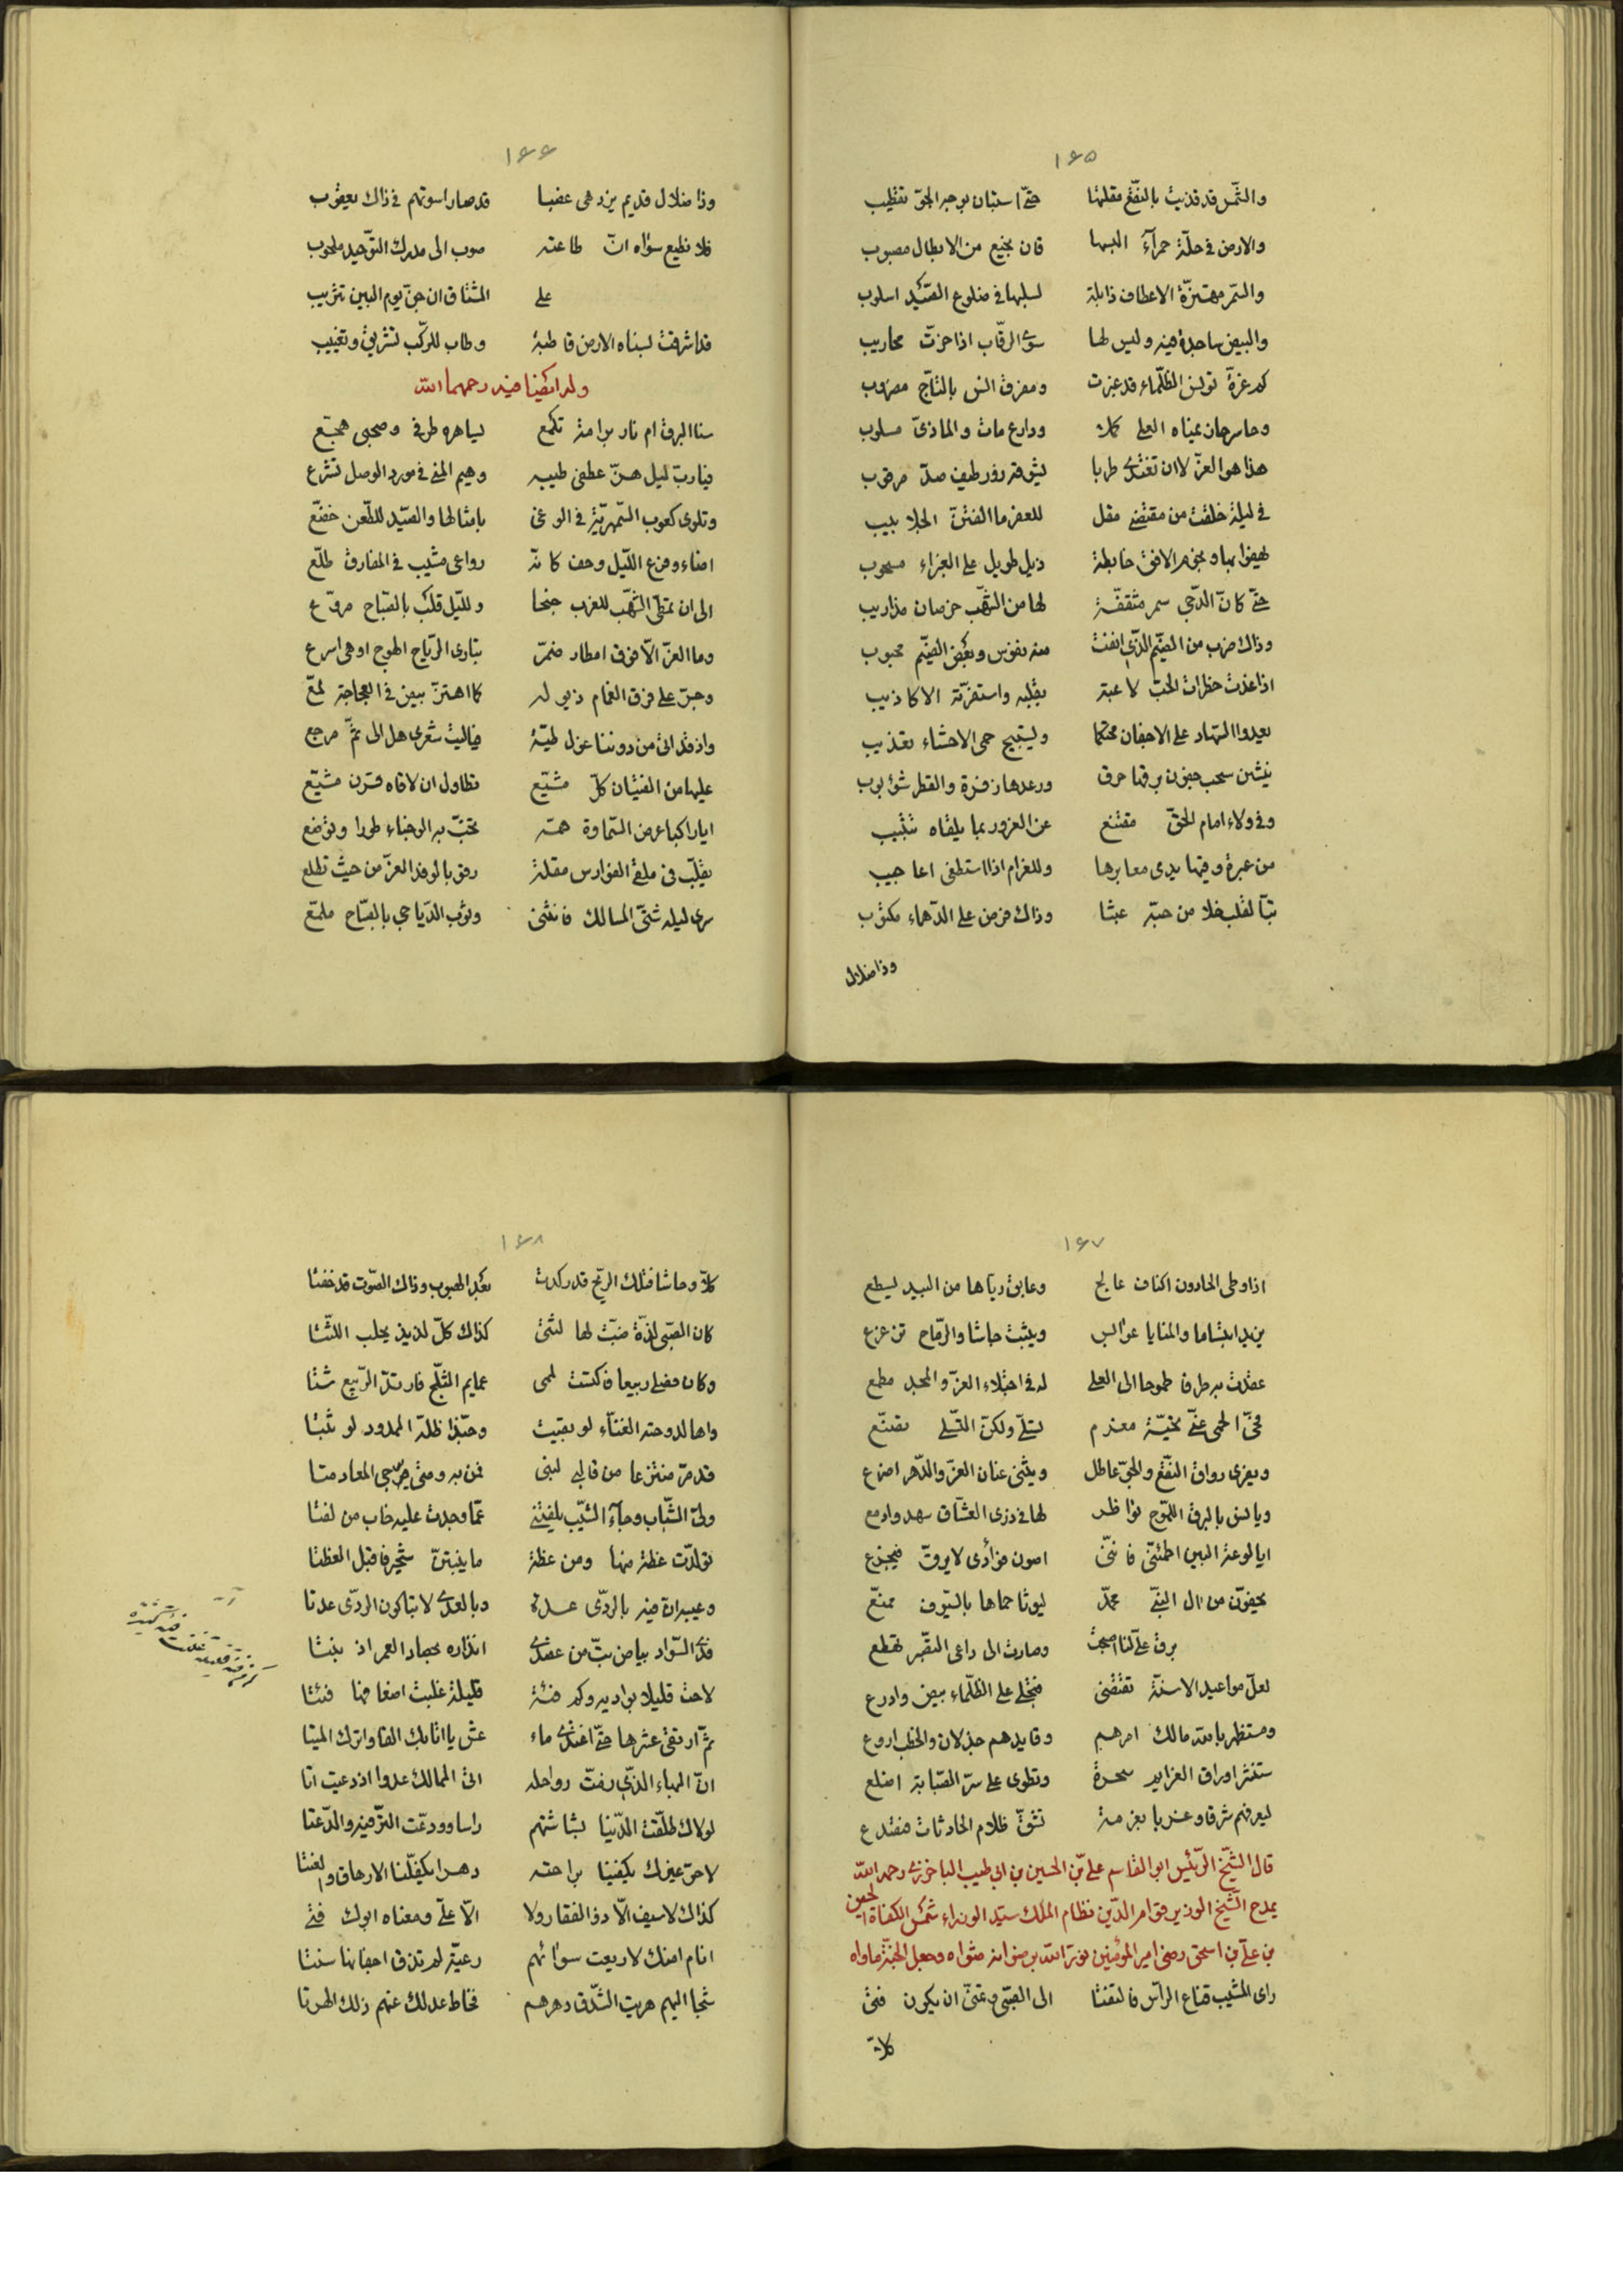 ١٦٥
والشّمس قد قذيت بالنّقع مقلتها حتّى استبان بوجه الجوّ تقطيب
والارض فى حلّة حمرآء البسها قان نجيع من الابطال مصبوب
والسّمر مهتزّة الاعطاف ذابلة لسلبها فى ضلوع الصّيد اسلوب
والبيض ساجدة فيه وليس لها سوى الرّقاب اذا حزّت محاريب
كم غرّة الظلماء قد ومفرق بالتّاج
وحاسر حان يمناه العلى كملا ودارع مات والماذىّ مسلوب
هذا هو العزّ لا ان تغتدى طربا يشوقه زور طيف صدّ مرقوب
فى ليلة خلفت من مقتضى مقل للعفر ما الفتنة الجلابيب
نجوم الافق خابطة ذيل طويل على الغبراء مسحوب
حتّى كانّ الدّجى سمر مثقّفة لها من الشّهب خرصان مذاريب
وذاك ضرب من الضّيم الّذى انفت منه نفوس وبعض الضّيم محبوب
اذا غدت خطرات الحبّ لاعبة بقلبه واستفزّته الاكاذيب
يعيدوا السّهاد على الاجفان محتكما ويستبيح حمى الاحشاء تعذيب
سحب جفون برقها حرق ورعدها زفرة والقطر شؤبوب
وفى ولاء امام الحقّ مقتنع عن الغرور بما يلقاه تثبيب
من عبرة وقيها يدى معابرها وللغرام اذا استطغى اعاجيب
تبّا لقلب خلا من حبّه عبثا وذاك فرض على الدّهماء مكتوب
وذا ضلال
١٦٦
وذا ضلال قديم يزدهى عضبا قد صار اسوتهم فى ذاك يعقوب
فلا نطيع سواه انّ طاعته صوب الى مدرك التّوحيد ملحوب
على المشتاق ان جنّ يوم البين تثريب
قد اشرقت لسناه الارض قاطبة وطاب للرّكب تشريق وتغييب
وله ايضا فيه رحمهما الله
سنا البرق ام نار برامة تلمع يساهره طرفى وصحبى هجّع
فيا ربّ ليل هزّ عطفى طيبه وهيم المنى فى مورد الوصل تشرع
وتلوى كعوب السّمهريّة فى الوغى بامثالها والصّيد للطّعن خضّع
اضاء وفرع اللّيل وحف كانّه رواعى مشيب فى المفارق طلّع
الى ان تمطّى الشّهب للغرب جنحا وللّيل قلب بالصّباح مروّع
وما العزّ الّا فوق امطار ضمّر تبارى الرّياح الهوج او هى اسرع
وجرّ على فرق الغمام ذيوله كما اهتزّ بيض فى العجاجة لمّع
واذ قد اتى من دوننا عزل طيّة فياليت شعرى هل الى ثمّ مرجع
عليها من الفتيان كلّ مشيّع تطاول ان لاقاه قرن مشيّع
ايا راكبا عرض السّماوة همّه تخبّ به الوجناء طورا وتوضع
يقلّب فى ملقى الفوارس مقلة رمق بالوفد العزّ من حيث تطلع
سرى ليله شتّى المسالك فانثنى وثوب الدّياجى بالصّباح ملمّع
١٦٧
اذا وطى الحادون اكناف عالج وعابق ريّاها من البيد يسطع
يزيد ابتساما والمنايا عوابس ويثبت جاشا والرّماح تزعزع
عقدت به طرفا طموحا الى العلى له فى اجتلاء العزّ والمجد مطمع
فحىّ الحمى عنّى تحيّة مغرم يسلّى ولكنّ التّسلّى تصنّع
ويغرى رواق النّقع والجوّ عاطل ويثنى عنان العزّ والدّهر اضرع
ويا لس بالبرق اللّموح نواظر لها فى ذرى العشّاق سهد وادمع
ايا لوعة البين اطمئنّى فانّنى اصون فوأدى لا يروقّ فيجزع
يحفّون من ال النّبىّ محمّد ليوثا حماها بالسّيوف ممنّع
برق على لنا اصبحت وصارت الى داعى التّفرّق تهطع
لعلّ مواعيد الاسنّة تقتضى فتجلى على الظّلماء بيض وادرع
ومستظهر بالله مالك امرهم وقايدهم جذلان والخطب اروع
ستنثر اوراق الغرايم سحرة وتطوى على سرّ الصّبابة اضلع
ليعرفهم شرقا وغربا بعزمة تشقّ ظلام الحادثات فتقدع
قال الشّيخ الرّئيس ابو القاسم علىّ بن الحسين بن ابى طيب الباخرزى رحمه الله
يمدح الشّيخ الوزير قوام الدّين نظام الملك سيّد الوزراء شمس الكفاة الحسن
بن علىّ بن اسحق رضى امير المؤمنين نوّر الله برضوانه مثواه وجعل الجنّة ماواه
راى المشيب قناع الرّاس فالتفتا الى الصّبى وعتىّ ان يكون فتى
كلاّ
١٦٨
كلّا وحاشا فتلك الرّيح قد ركدت بعد الهبوب وذاك الصّوت قد خفتا
كان الصّبى لذّة ضبّت لها لثتى كذاك كلّ لذيذ يحلب اللّثتا
وكان فضلى ربيعا فاكتست لممى عمايم الثّلج فارتدّ الرّبيع شتا
واها لدوحته الغنّاء لو بقيت وحبّذا ظلّه الممدود لو ثبتا
قد مرّ منتزعا من قالبى لبنى فمن به ومتى يرجى المعاد متا
ولّى الشّباب وجآء الشّيب يلفتنى عمّا وجدت عليه خاب من لفتا
تولّدت عظة منها ومن عظة ما ينبتنّ شجيرا قبل العظتا
وعيبدان فيه بالرّدى عدة دبا لعدى لابتاكون الرّدى عدتا
فذى السّواد بياض بتّ من عضدى انذاره بحصاد العمر اذ نبتا
لاحت قليلا بواديه وكم فئة قليلة غلبت اضعافها فئتا
ثمّ ارتقى عشرها حتّى اغتدى ماء عش يا اتابك الفا واترك الميتا
انّ البهاء الّذى زفّت رواحله اتى الممالك عدوا اذ دعيت اتا
لولاك طلّقت الدّنيا بشاشتهم راسا وودّعت التّرفيه والدّعتا
لا حرّ غيرك يكفينا براحته دهرا يكفّلنا الارهاق والعنتا
كذاك لا سيف الّا ذو الفقار ولا الّا علىّ ومعناه ابوك فتى
انام امنك لا ريعت سوائمهم رعيّة لم تذق اجفانها سنتا
شجا اليهم هريت الشّدق دهرهم فخاط عدلك عنهم ذلك الهرتا